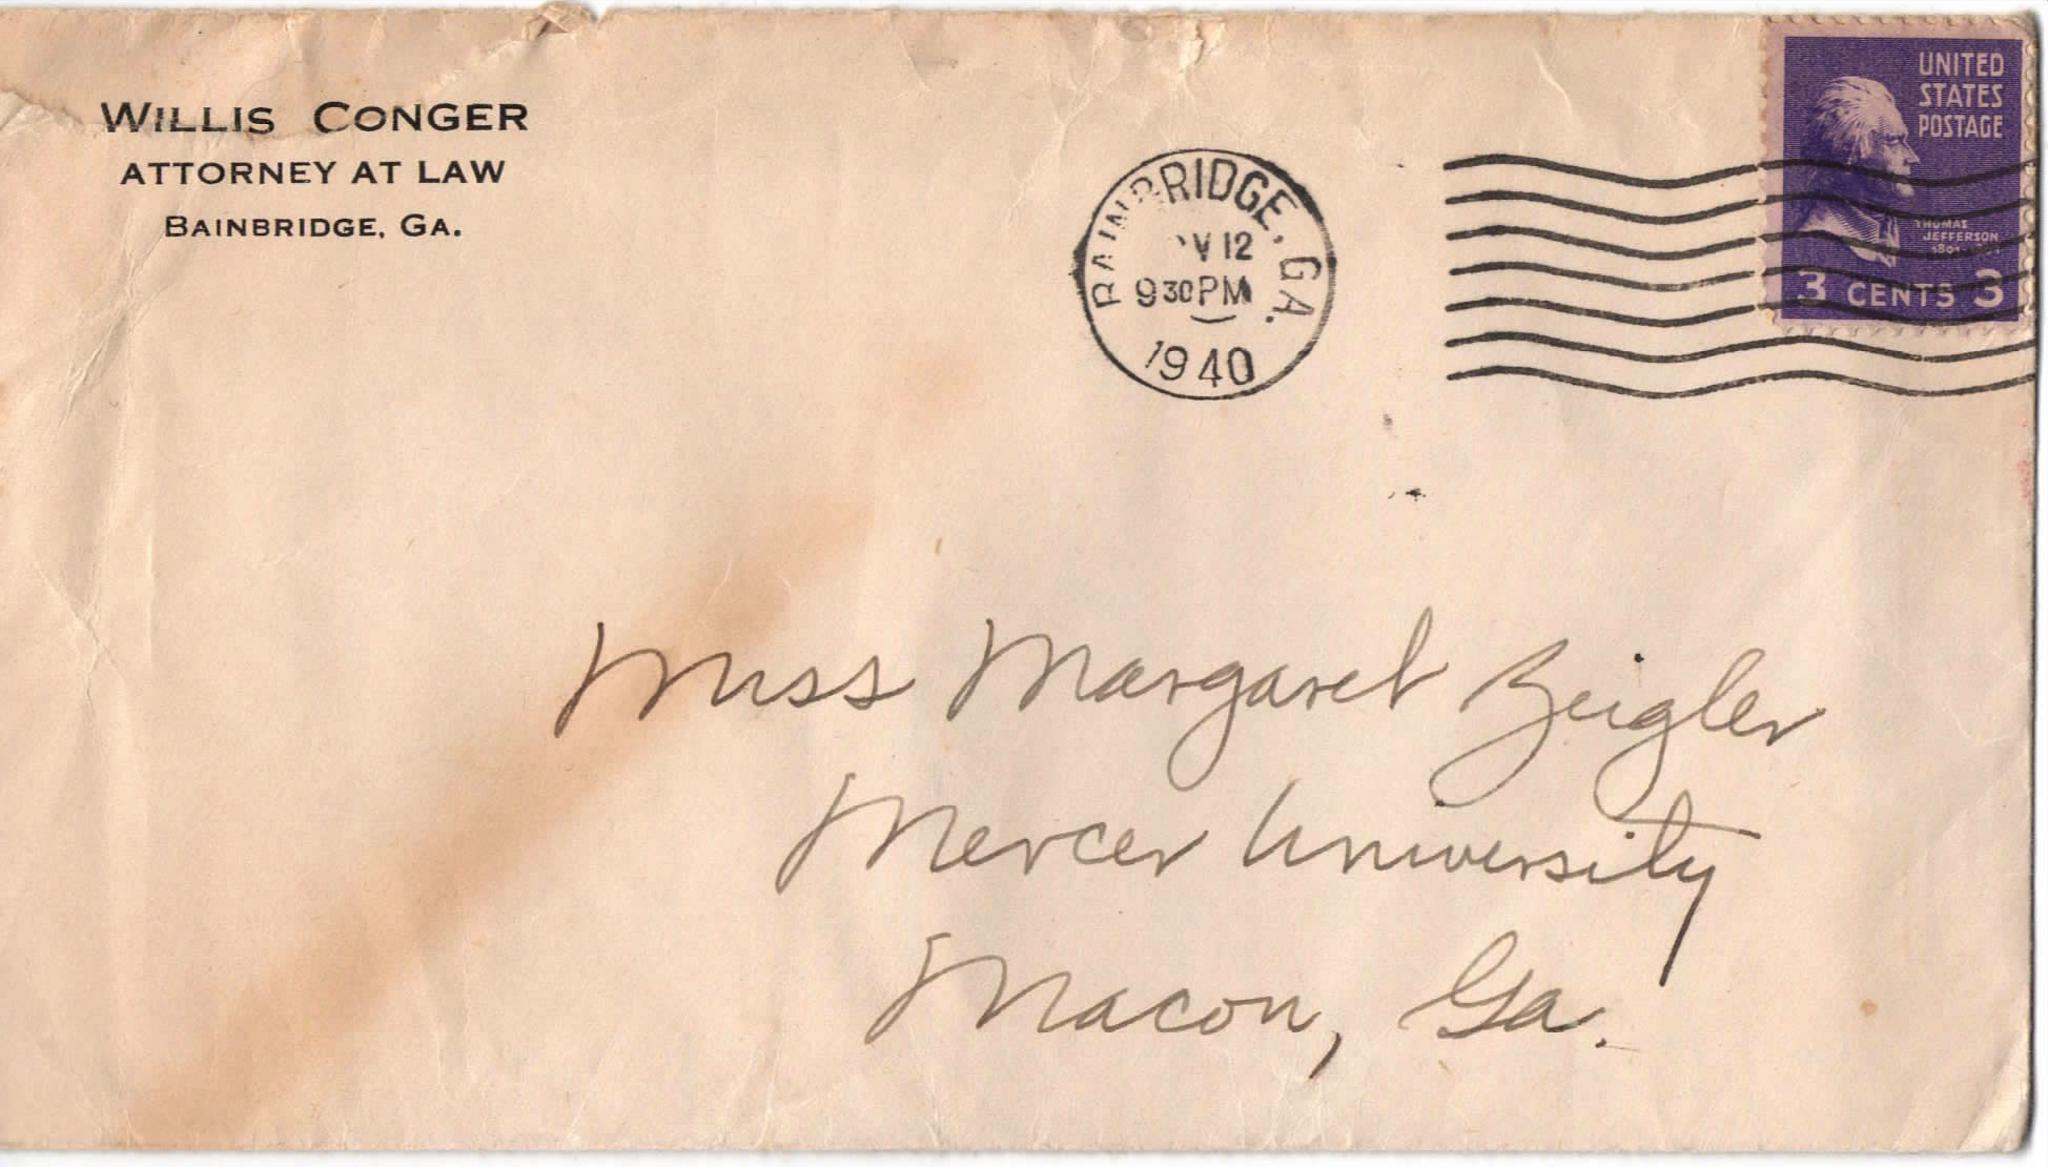 WILLIS CONGER
ATTORNEY AT LAW
BAINBRIDGE, GA.
BAINBRIDGE, GA.
V 12
9 30 PM
1940
UNITED
STATES
POSTAGE
THOMAS
JEFFERSON
3 CENTS 3
Miss Margaret Zeigler
Mercer University
Macon, Ga.